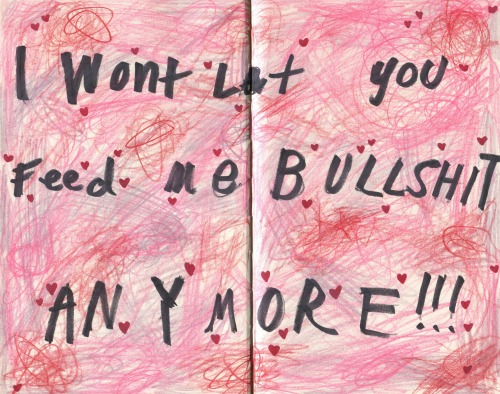 I Wont Let you
Feed me BULLSHIT
ANYMORE!!!